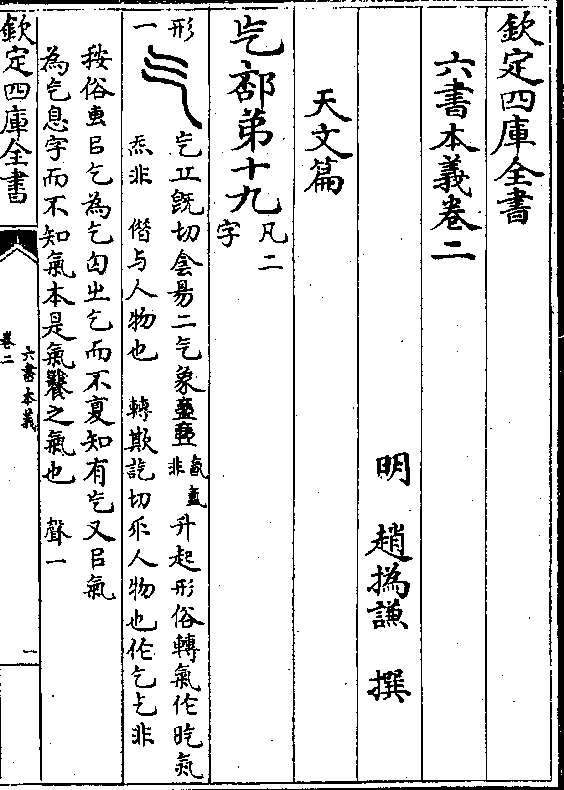 欽定四庫全書
六書本義卷二
明 趙撝謙 撰
天文篇
气部第十九 凡二字
形一
气 丘旣切侌昜二气象 升起形俗轉氣作旼氣
炁非 僣与人物也 轉欺訖切求人物也作乞乞非
按俗虽㠯乞為乞匃出乞而不夏知有气又㠯氣
為乞息字而不知氣本是氣餼之氣也 聲一
欽定四庫全書
卷二
六書本義
一